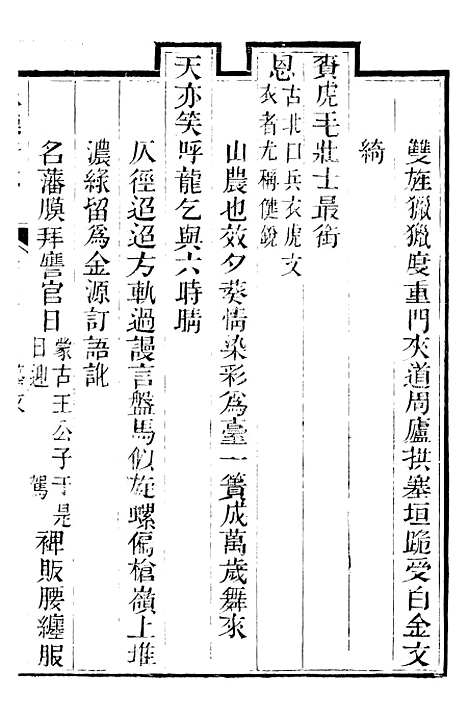 雙旌獵獵度重門夾道周廬拱塞垣跪受白金文
綺
賚虎毛壯士最銜
恩
古北口兵衣虎文
衣者尤稱健銳
山農也效夕葵情染彩爲臺一簣成萬歲舞來
天亦笑呼龍乞與六時晴
仄徑迢迢方軌過謾言盤馬似旋螺偏槍嶺上堆
濃綠留爲金源訂語訛
名藩膜拜官日
蒙古王公子于是
日迎駕
裨販腰纏服